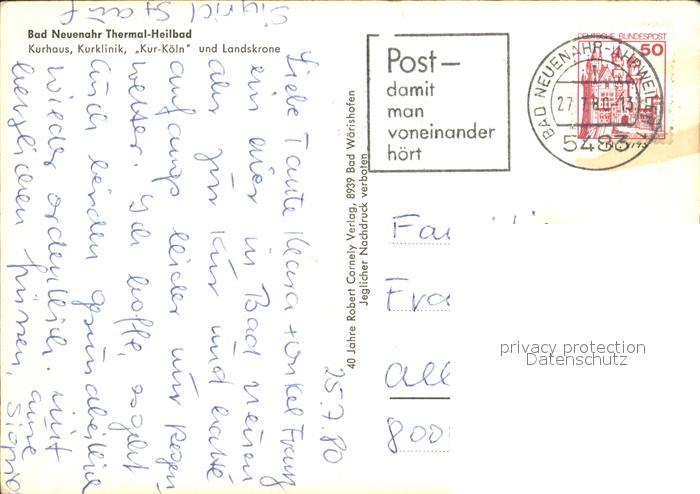 Bad Neuenahr Thermal-Heilbad
Kurhaus, Kurklinik, „Kur-Köln" und Landskrone
Post –
damit
man
voneinander
hört
DEUTSCHE BUNDESPOST
50
BAD NEUENAHR-AHRWEILER
27.7.80-13
5483
40 Jahre Robert Cornely Verlag, 8939 Bad Wörishofen
Jeglicher Nachdruck verboten
25.7.80
Liebe Tante Klara + Onkel Franz
bin hier in Bad Neuen
ahr zur Kur und hatte
anfangs leider nur Regen
wetter. Ich hoffe, es geht
Euch beiden gesundheitlich
wieder ordentlich. mit
herzlichen Grüssen, Eure Sigrid
Sigrid
Fa
Fra
all
800
privacy protection
Datenschutz